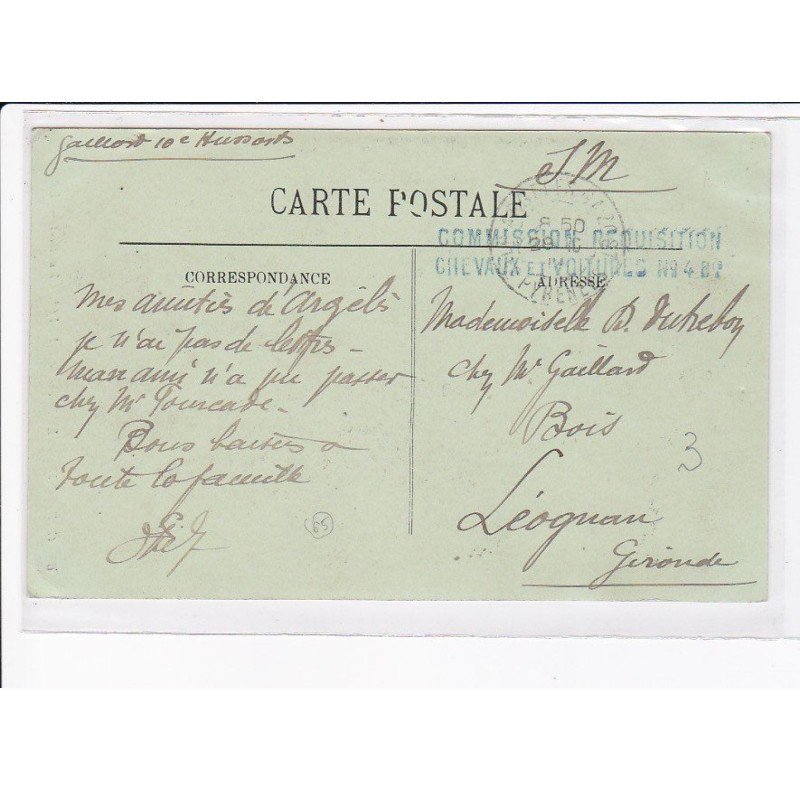 Gaillard 10e Hussards
S M
CARTE POSTALE
8 50
COMMISSION REQUISITION
CHEVAUX ET VOITURES No 4
PYRENEES
CORRESPONDANCE
ADRESSE
Mes amitiés d'Argelès
je n'ai pas de lettres -
mon ami n'a pu passer
chez Mr Fourcade -
Bons baisers a
toute la famille
Mademoiselle B.
chez Mr Gaillard
Bois
Léognan
Gironde
65
3